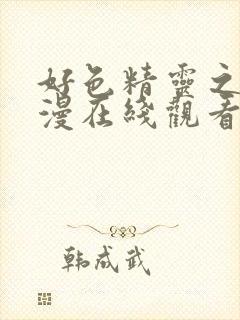 好色精靈之
漫在綫觀看
韩成武